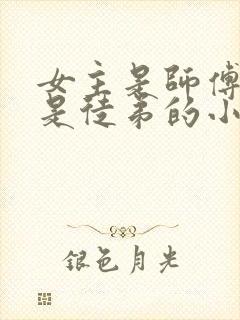 女主是師傅
是徒弟的小
銀色月光